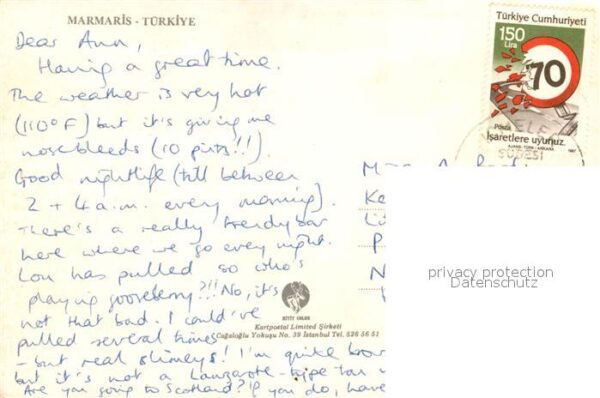 MARMARİS - TÜRKİYE
Dear Ann,
Having a great time.
The weather is very hot
(110°F) but it's giving me
nosebleeds (10 pints!!)
Good nightlife (till between
2 + 4 a.m. every morning).
There's a really trendy bar
here where we go every night.
Lou has pulled so who's
playing gooseberry?!! No, it's
not that bad. I could've
pulled several times
- but real slimeys! I'm quite brow
but it's not a Lanzarote-type tan
Are you going to Scotland? If you do, have
Türkiye Cumhuriyeti
150
Lira
70
Posta
İşaretlere uyunuz.
AJANS-TÜRK-ANKARA 1987
ŞUBESİ
Ke
Li
P
N
privacy protection
Datenschutz
Kartpostal Limited Şirketi
Cağaloğlu Yokuşu No. 39 İstanbul Tel. 526 56 51